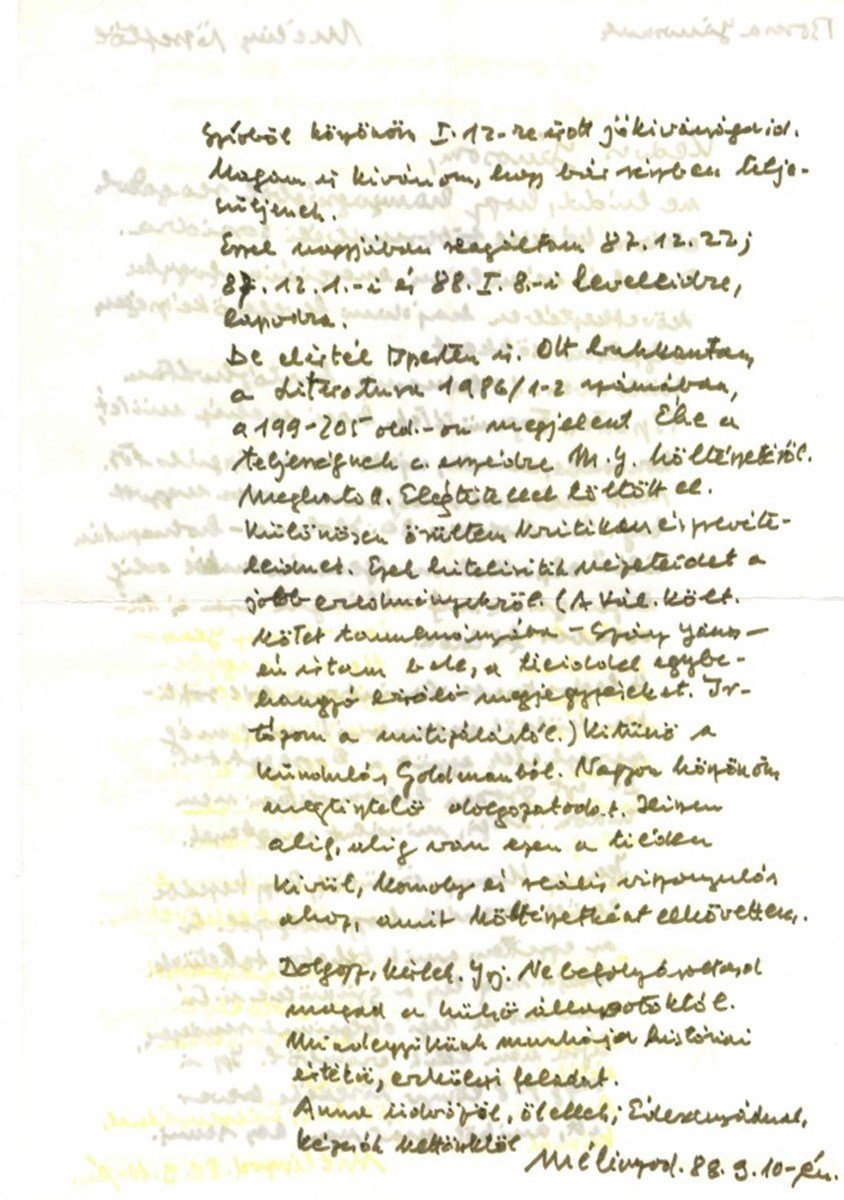 Szívből köszönöm I. 12-re írott jókívánságaid.
Magam is kívánom, hogy bár részben telje-
süljenek.
Ezzel nagyjában reagáltam 87.12.22;
87.12.1.-i és 88.I.8.-i leveleidre,
lapodra.
De elértél Pesten is. Ott bukkantam,
a Literatura 1986/1-2 számában,
a 199-205 old.-on megjelent Éhe a
teljességnek c. esszédre M.J. költészetéről.
Meghatott. Elégtétellel töltött el.
Különösen örültem kritikai észrevéte-
leidnek. Ezek hitelesítik nézeteidet a
jobb eredményekről. (A Vál. Költ.
kötet tanulmányába – Szász János –
én írtam bele, a tieiddel egybe-
hangzó bíráló megjegyzéseket. Ir-
tózom a mitizálástól.) Kitünő a
kiindulás Goldmanból. Nagyon köszönöm
megtisztelő dolgozatodat. Hiszen
alig, alig van ezen a tiéden
kívül, komoly és reális viszonyulás
ahoz, amit költészetként elkövettem.
Dolgozz, kérlek. Írj. Ne befolyásoltasd
magad a külső állapotoktól.
Mindegyikünk munkája históriai
értékű, erkölcsi feladat.
Anna üdvözöl, ölellek; Édesanyádnak,
kézcsók kettőnktől
Méliuszod. 88. 3. 10-én.